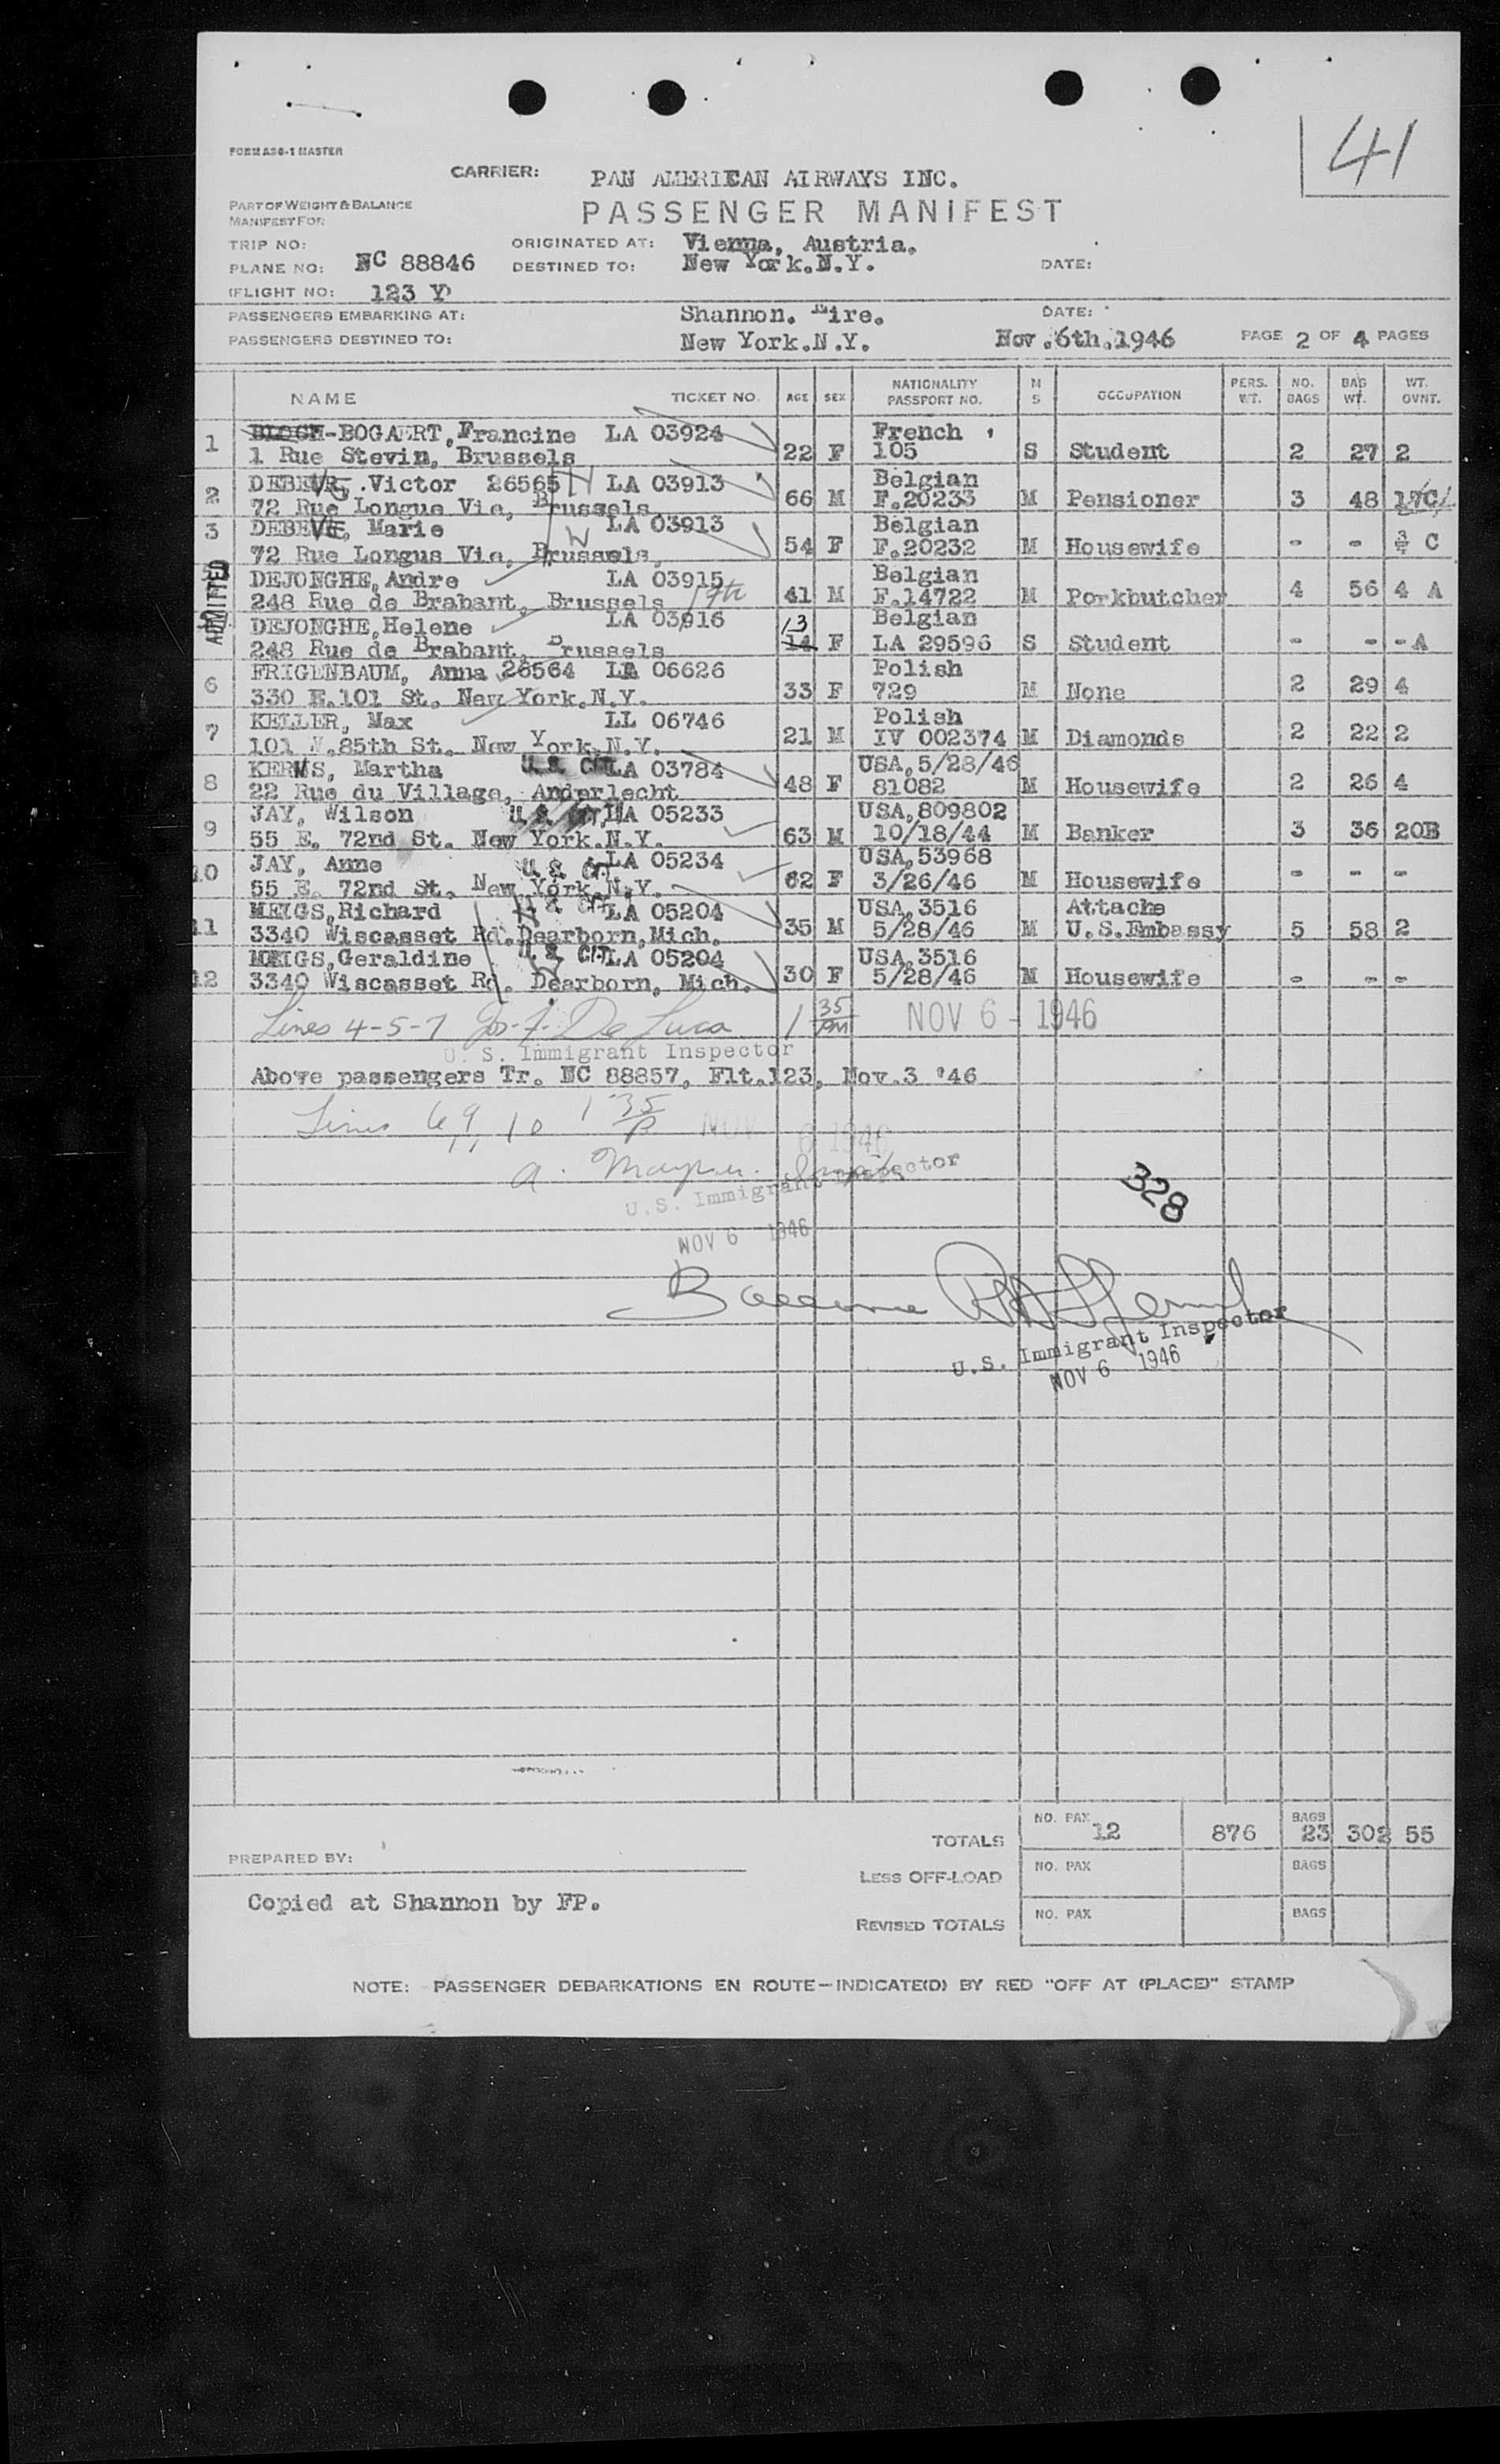 41
FORM A20-1 MASTER
CARRIER: PAN AMERICAN AIRWAYS INC.
PART OF WEIGHT & BALANCE
MANIFEST FOR
PASSENGER MANIFEST
TRIP NO: ORIGINATED AT: Vienna, Austria.
PLANE NO: NC 88846 DESTINED TO: New York.N.Y. DATE:
(FLIGHT NO: 123 Y)
PASSENGERS EMBARKING AT: Shannon. Eire. DATE:
PASSENGERS DESTINED TO: New York.N.Y. Nov.6th.1946 PAGE 2 OF 4 PAGES
NAME TICKET NO. AGE SEX NATIONALITY PASSPORT NO. M S OCCUPATION PERS. WT. NO. BAGS BAG WT. WT. OVNT.
1 BLOCH-BOGAERT,Francine LA 03924 French
1 Rue Stevin, Brussels 22 F 105 S Student 2 27 2
2 DEBEVE .Victor 26565 LA 03913 Belgian
72 Rue Longue Vie, Brussels 66 M F.20233 M Pensioner 3 48 17C
3 DEBEVE, Marie LA 03913 Belgian
72 Rue Longus Vie, Brussels, 54 F F.20232 M Housewife - - 3/4 C
ADMITTED
DEJONGHE,Andre LA 03915 Belgian
248 Rue de Brabant, Brussels 41 M F.14722 M Porkbutcher 4 56 4 A
DEJONGHE,Helene LA 03916 13 Belgian
248 Rue de Brabant, Brussels 14 F LA 29596 S Student - - - A
6 FRIGENBAUM, Anna 26564 LA 06626 Polish
330 E.101 St. New York.N.Y. 33 F 729 M None 2 29 4
7 KELLER, Max LL 06746 Polish
101 W.85th St. New York.N.Y. 21 M IV 002374 M Diamonds 2 22 2
8 KERMS, Martha U.S. CIT. LA 03784 USA,5/28/46
22 Rue du Village, Anderlecht 48 F 81082 M Housewife 2 26 4
9 JAY, Wilson U.S. CIT. LA 05233 USA,809802
55 E. 72nd St. New York.N.Y. 63 M 10/18/44 M Banker 3 36 20B
10 JAY, Anne U.S. CIT. LA 05234 USA,53968
55 E. 72nd St. New York.N.Y. 62 F 3/26/46 M Housewife - - -
11 MEIGS,Richard U.S. CIT. LA 05204 USA,3516 Attache
3340 Wiscasset Rd.Dearborn,Mich. 35 M 5/28/46 M U.S.Embassy 5 58 2
12 MEIGS,Geraldine U.S. CIT. LA 05204 USA,3516
3340 Wiscasset Rd. Dearborn, Mich. 30 F 5/28/46 M Housewife - - -
Lines 4-5-7 Jos. F. De Luca 1 35 PM NOV 6 - 1946
U. S. Immigrant Inspector
Above passengers Tr. NC 88857, Flt.123, Nov.3 '46
Lines 6, 9, 10 1 35 P NOV 6 1946
U.S. Immigrant Inspector
328
NOV 6 1946
U.S. Immigrant Inspector
NOV 6 1946
TOTALS NO. PAX 12 876 BAGS 23 302 55
PREPARED BY:
LESS OFF-LOAD NO. PAX BAGS
Copied at Shannon by FP.
REVISED TOTALS NO. PAX BAGS
NOTE: PASSENGER DEBARKATIONS EN ROUTE—INDICATE(D) BY RED "OFF AT (PLACE)" STAMP